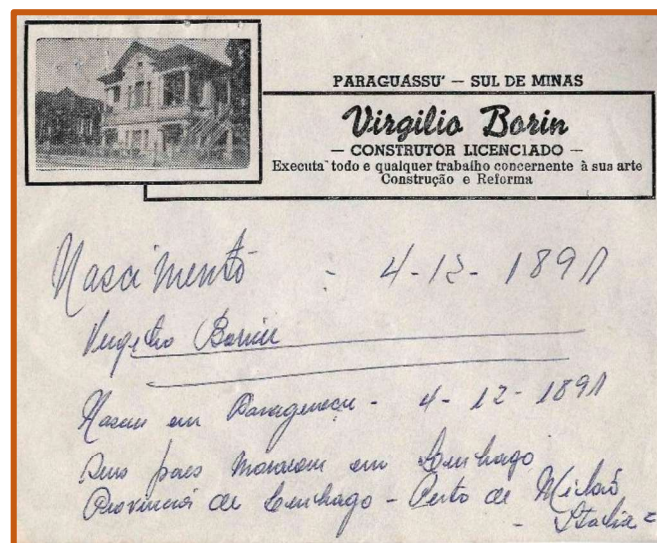 PARAGUASSU' — SUL DE MINAS
Virgilio Borin
— CONSTRUTOR LICENCIADO —
Executa todo e qualquer trabalho concernente à sua arte
Construção e Reforma
Nascimento - 4-12-1891
Virgilio Borin
Nasceu em Paraguaçu - 4-12-1891
Seus paes moravam em
Provincia de - Perto de Milão
- Italia =